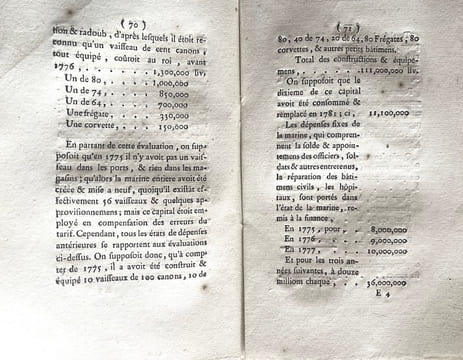 ( 70 )
tion & radoub, d'après lesquels il étoit re-
connu qu'un vaisseau de cent canons,
tout équipé, coûtoit au roi, avant
1776, . . . . . . 1,300,000 liv.
Un de 80, . . . . . 1,000,000
Un de 74, . . . . . 850,000
Un de 64, . . . . . 700,000
Une frégate, . . . . 330,000
Une corvette, . . . . 150,000
En partant de cette évaluation, on sup-
posoit qu'en 1775 il n'y avoit pas un vais-
seau dans les ports, & rien dans les ma-
gasins; qu'alors la marine entière avoit été
créée & mise a neuf, quoiqu'il existât ef-
fectivement 56 vaisseaux & quelques ap-
provisionnemens; mais ce capital étoit em-
ployé en compensation des erreurs du
tarif. Cependant, tous les états de dépenses
antérieures se rapportent aux évaluations
ci-dessus. On supposoit donc, qu'à comp-
ter de 1775, il a avoit été construit &
équipé 10 vaisseaux de 100 canons, 10 de
( 71 )
80, 40 de 74, 20 de 64, 80 Frégates, 80
corvettes, & autres petits bâtimens.
Total des constructions & équipe-
mens, . . . . . 111,000,000 liv.
On supposoit que le
dixieme de ce capital
avoit été consommé &
remplacé en 1782; ci, 11,100,000
Les dépenses fixes de
la marine, qui compren-
nent la solde & appoin-
temens des officiers, sol-
dats & autres entretenus,
la réparation des bâti-
mens civils, les hôpi-
taux, sont portés dans
l'état de la marine, re-
mis à la finance,
En 1775, pour . . 8,000,000
En 1776, . . . . 9,000,000
En 1777, . . . . 10,000,000
Et pour les trois an-
nées suivantes, à douze
millions chaque, . . 36,000,000
E 4